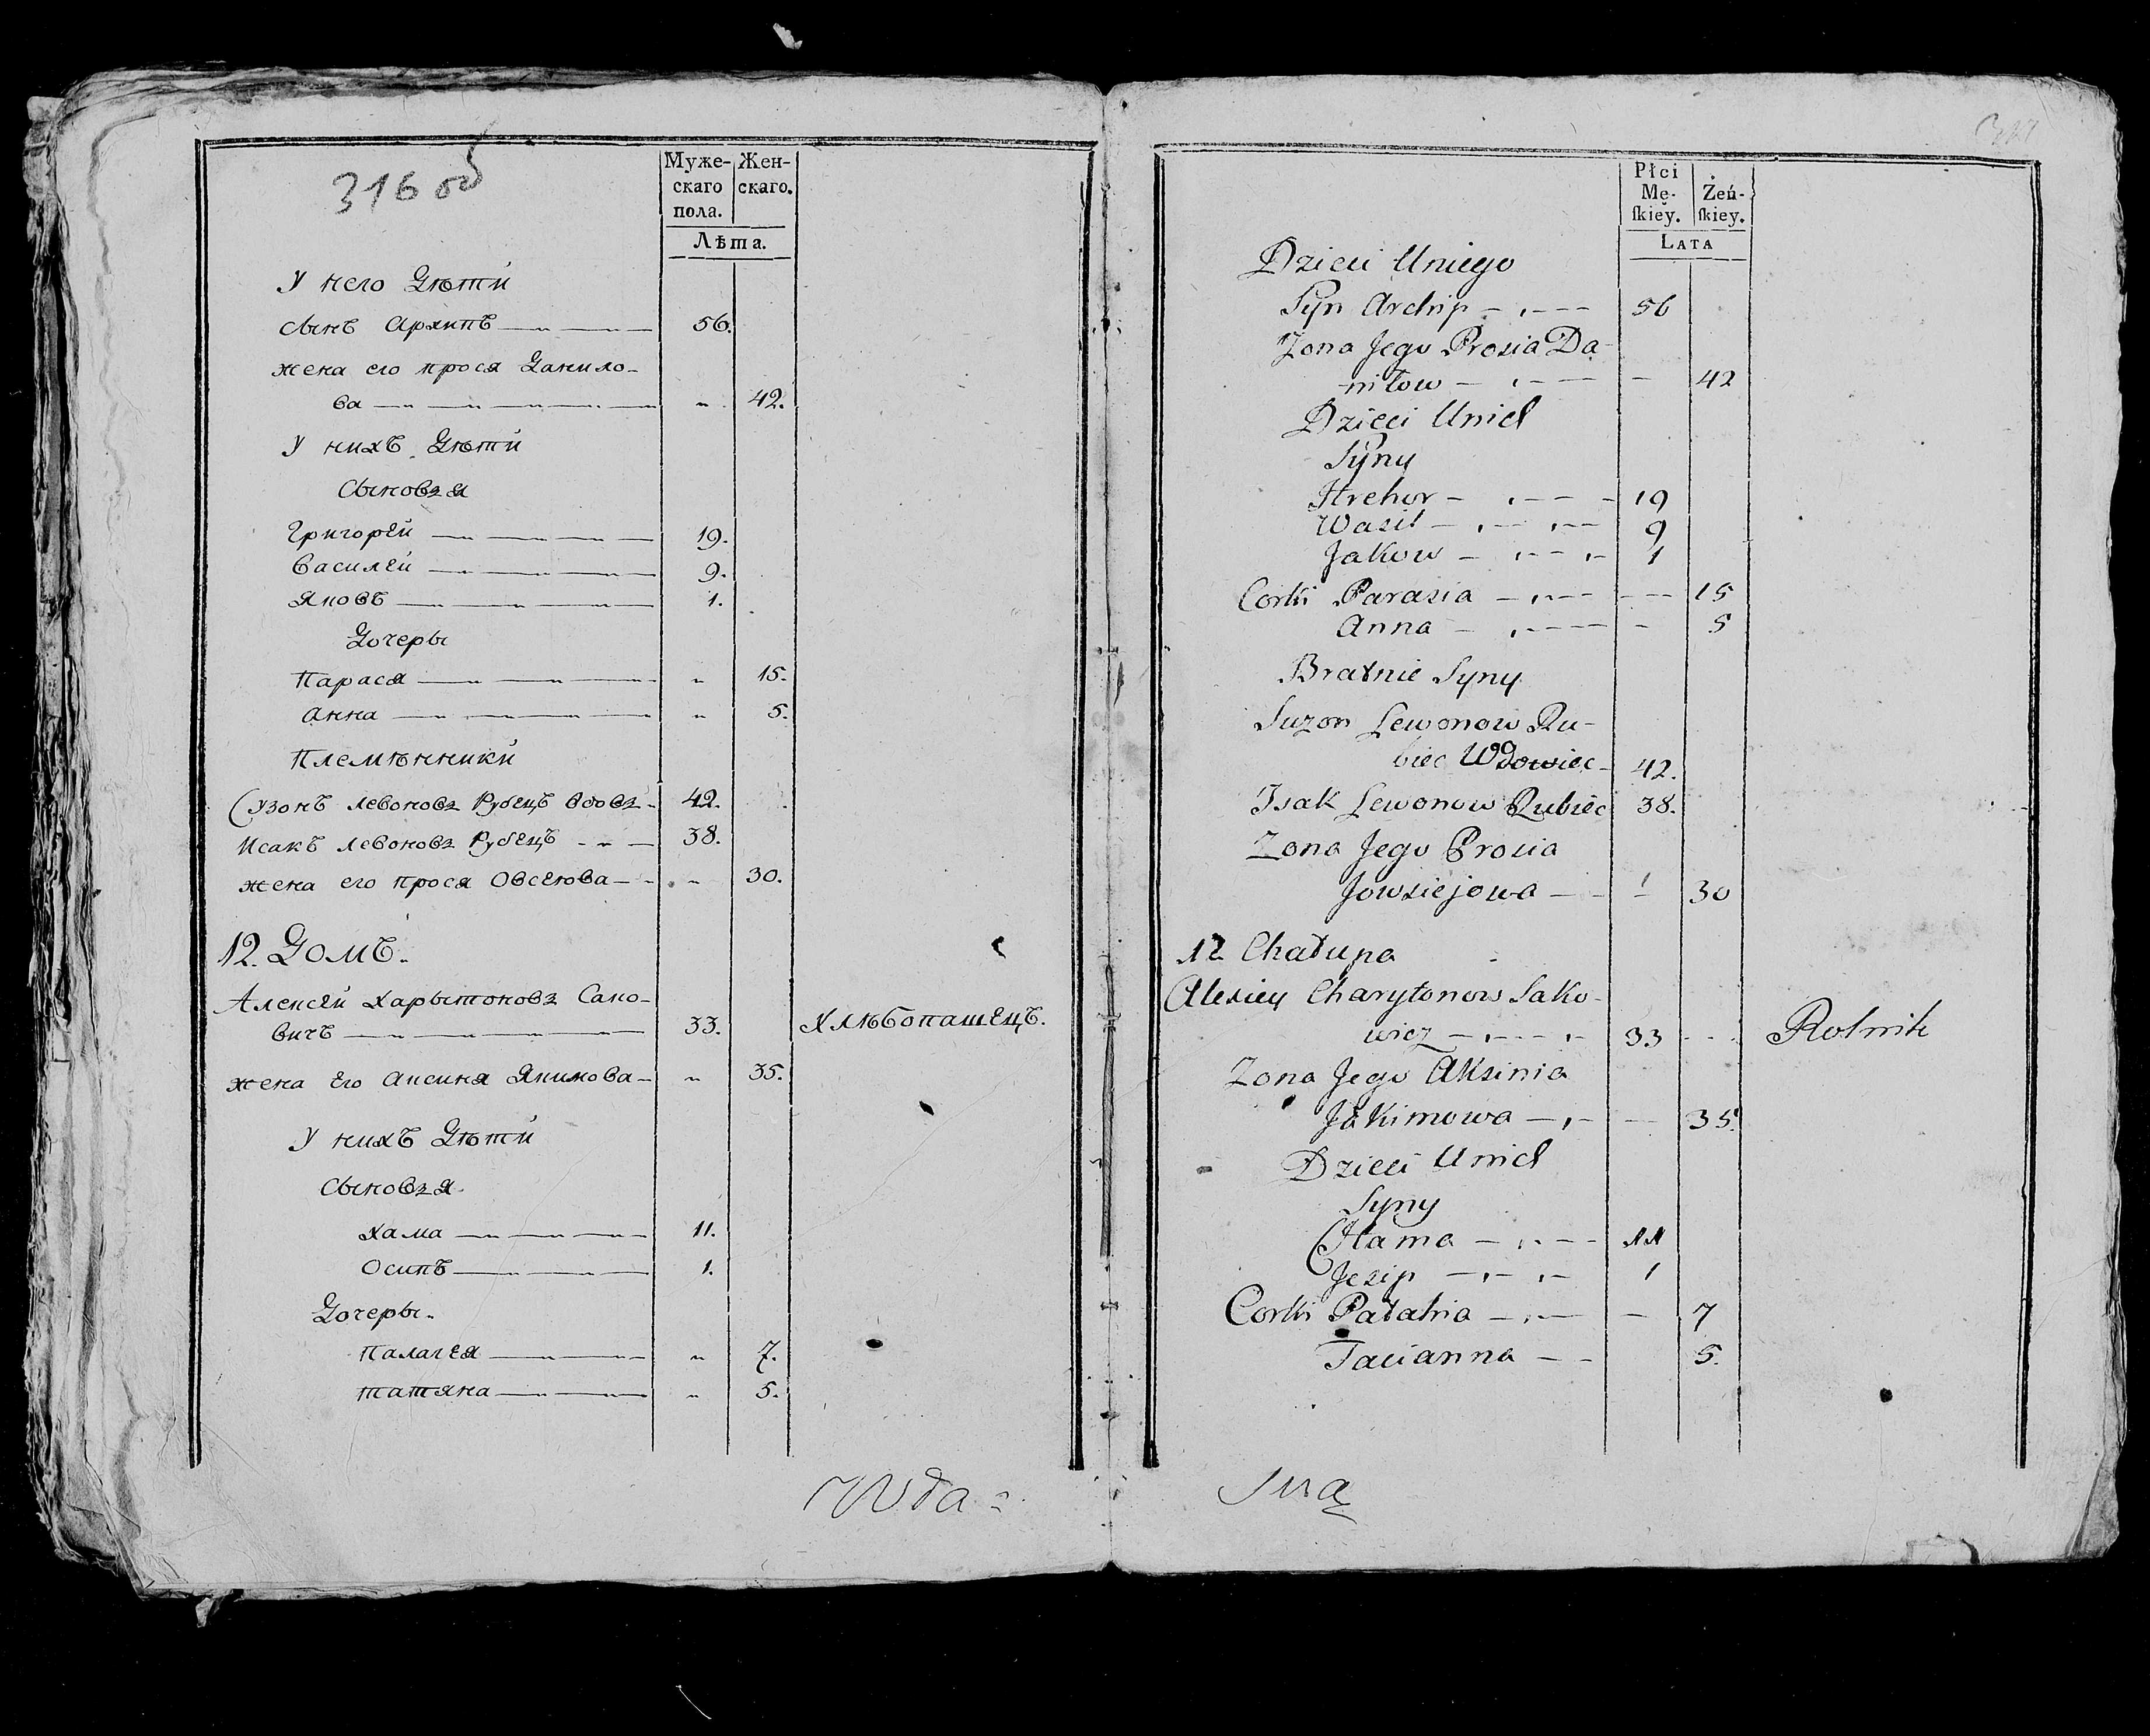 316 об
Муже-
скаго
пола.
Жен-
скаго.
Лѣта.
У него Дѣти
сынъ Архипъ 56.
жена его прося Данило-
ва 42.
У нихъ Дѣти
Сыновья
Григорей 19.
Василей 9.
Яковъ 1.
Дочеры
Парася 15.
Анна 5.
Племѣнники
Сузонъ левоновъ Рубецъ вдовъ 42.
Исакъ левоновъ Рубецъ 38.
жена его прося Овсеюва 30.
12. Домъ.
Алексей Харытоновъ Сако-
вичъ 33. Хлѣбопашецъ.
жена Его Аксиня Якимова 35.
У нихъ Дѣти
Сыновья
Хама 11.
Осипъ 1.
Дочеры.
Палагея 7.
татяна 5.
Płci
Mę-
ſkiey.
Żeń-
ſkiey.
LATA
Dzieci Uniego
Syn Archip 56
Zona Jego Prosia Da-
niłow 42
Dzieci Unich
Syny
Hrehor 19
Wasil 9
Jakow 1
Corki Parasia 15
Anna 5
Bratnie Syny
Suzon Lewonow Ru-
biec Wdowiec 42.
Isak Lewonow Rubiec 38.
Zona Jego Prosia
Jowsiejowa 30
12 Chałupa
Alexiey Charytonow Sako-
wicz 33 Rolnik
Zona Jego Aksinia
Jakimowa 35.
Dzieci Unich
Syny
Hama 11
Jesip 1
Corki Pałahia 7
Tacianna 5.